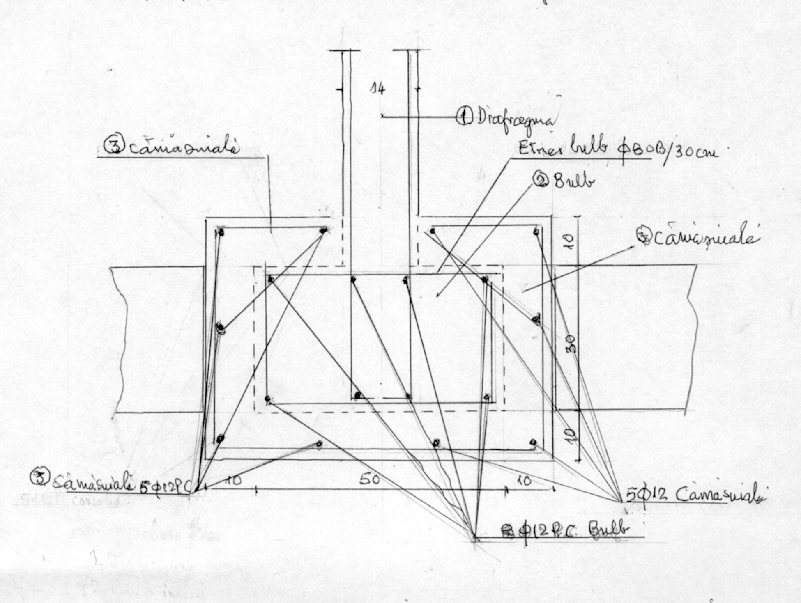 14
① Diafragma
③ Cămăşuială
Etrier bulb ϕ8OB/30cm
② Bulb
③ Cămăşuială
10
30
10
③ Cămăşuială 5ϕ12PC
10
50
10
5ϕ12 Cămăşuială
8ϕ12P.C. Bulb